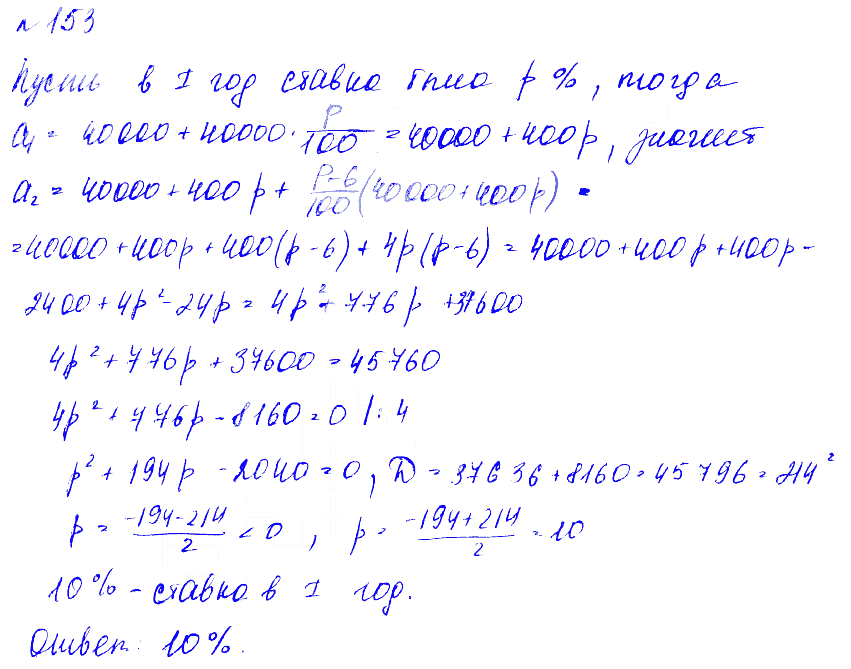 № 153
Пусть в I год ставка была p %, тогда
a₁ = 40000 + 40000 · p/100 = 40000 + 400p, значит
a₂ = 40000 + 400p + (p-6)/100 (40000 + 400p) =
= 40000 + 400p + 400(p-6) + 4p(p-6) = 40000 + 400p + 400p -
2400 + 4p² - 24p = 4p² + 776p + 37600
4p² + 776p + 37600 = 45760
4p² + 776p - 8160 = 0 /: 4
p² + 194p - 2040 = 0, D = 37636 + 8160 = 45796 = 214²
p = (-194-214)/2 < 0, p = (-194+214)/2 = 10
10% - ставка в I год.
Ответ: 10%.